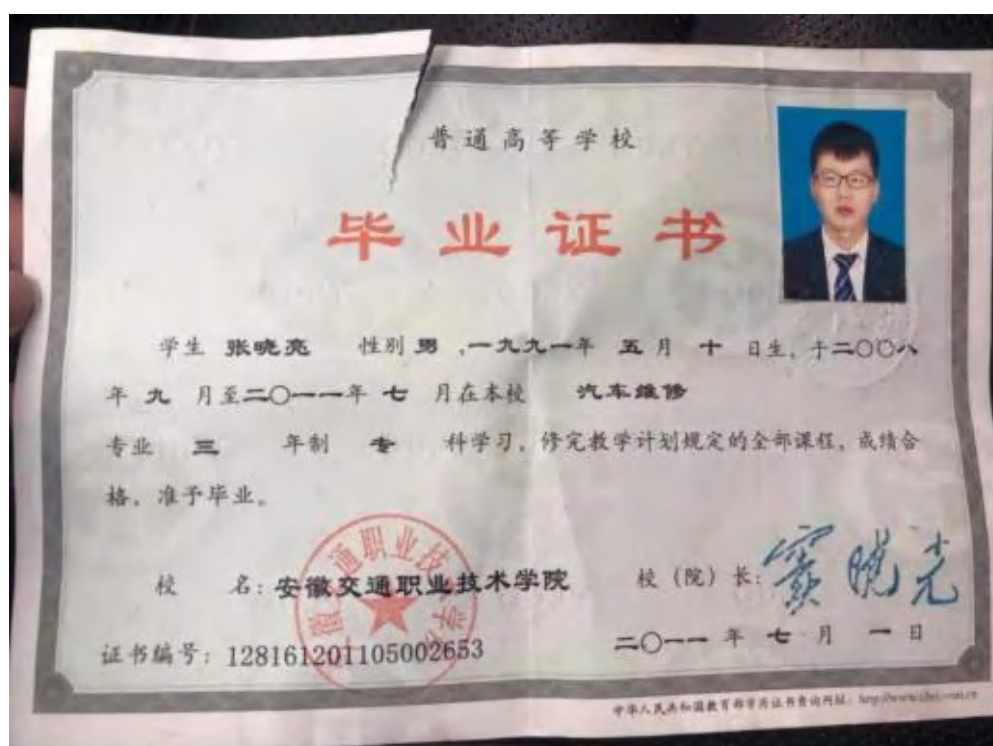 普通高等学校
毕业证书
学生 张晓亮 性别 男 ,一九九一年 五 月 十 日生,于二〇〇八
年 九 月至二〇一一年 七 月在本校 汽车维修
专业 三 年制 专 科学习,修完教学计划规定的全部课程,成绩合
格,准予毕业。
校 名:安徽交通职业技术学院 校(院)长:窦晓光
证书编号:128161201105002653 二〇一一 年 七 月 一 日
中华人民共和国教育部学历证书查询网址: